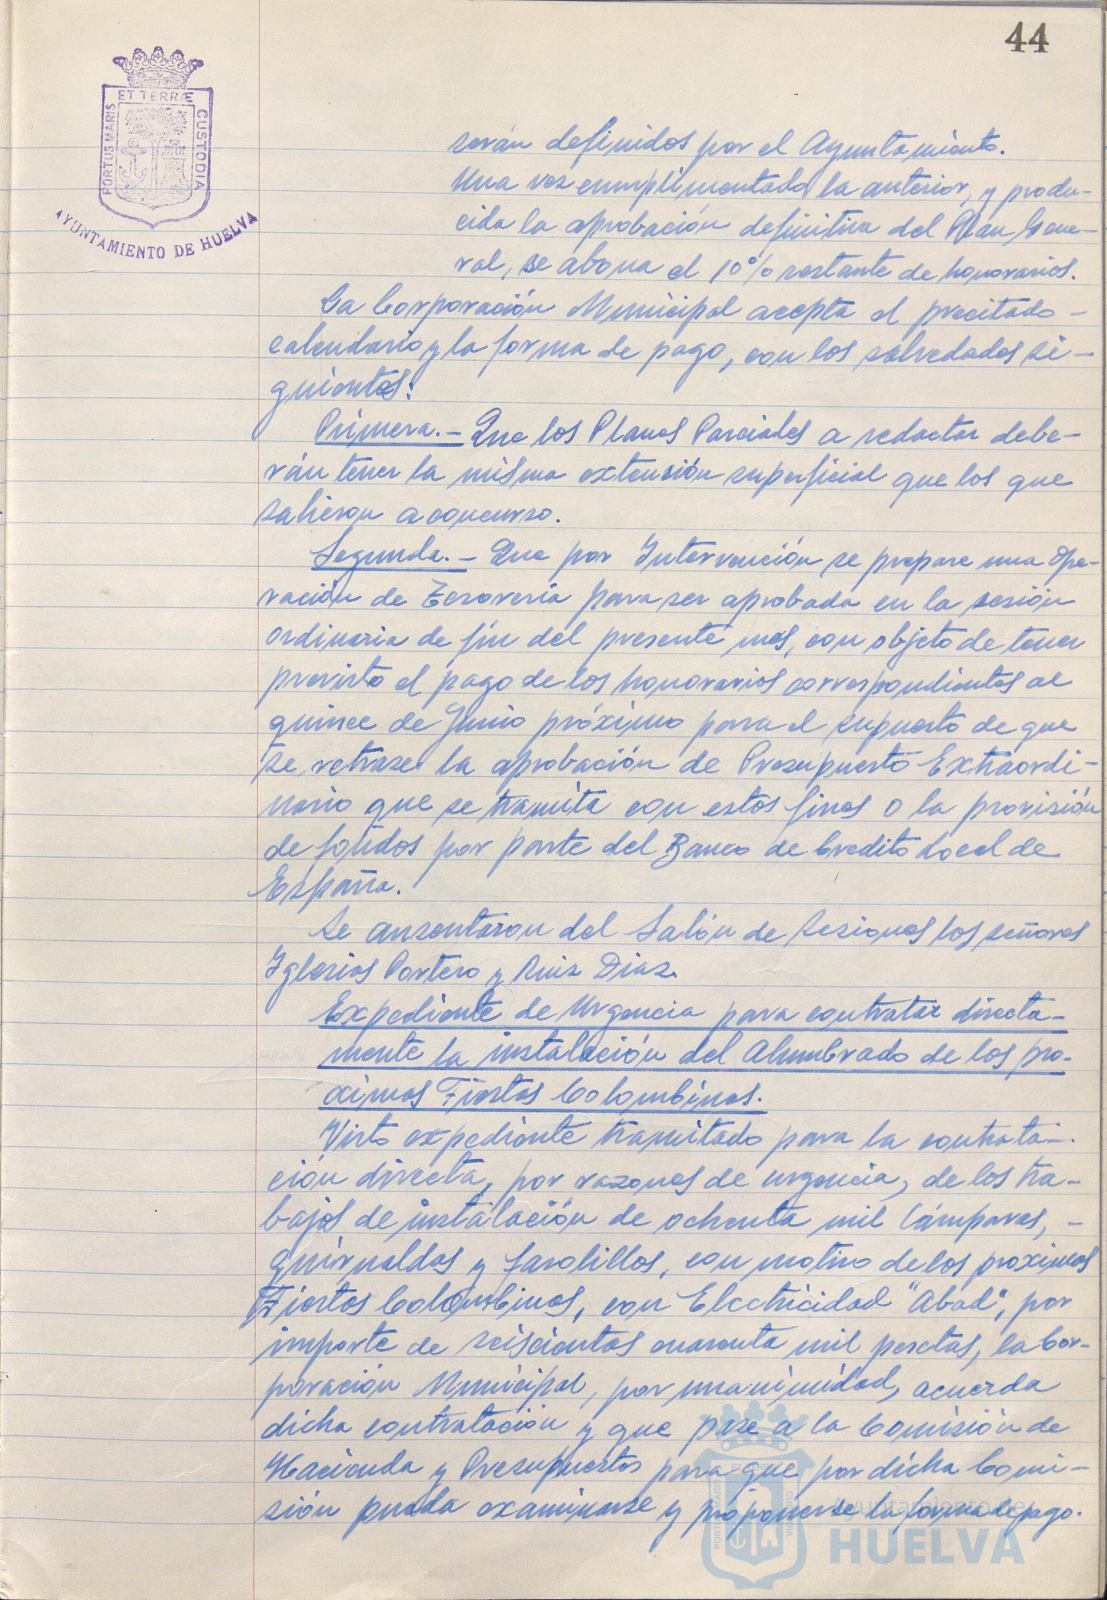 44
ET TERRÆ
PORTUS MARIS
CUSTODIA
AYUNTAMIENTO DE HUELVA
serán definidos por el Ayuntamiento.
Una vez cumplimentada la anterior, y produ-
cida la aprobación definitiva del Plan Gene-
ral, se abona el 10% restante de honorarios.
La Corporación Municipal acepta el precitado -
calendario y la forma de pago, con los salvedades si-
guientes:
Primera.- Que los Planes Parciales a redactar debe-
rán tener la misma extensión superficial que los que
salieron a concurso.
Segunda.- Que por Intervención se prepare una Ope-
ración de Tesorería para ser aprobada en la sesión
ordinaria de fin del presente mes, con objeto de tener
previsto el pago de los honorarios correspondientes al
quince de Junio próximo para el supuesto de que
se retrase la aprobación de Presupuesto Extraordi-
nario que se tramita con estos fines o la provisión
de fondos por parte del Banco de Credito Local de
España.
Se ausentaron del Salón de Sesiones los señores
Iglesias Portero y Ruiz Diaz.
Expediente de Urgencia para contratar directa-
mente la instalación del Alumbrado de los pró-
ximas Fiestas Colombinas.
Visto expediente tramitado para la contrata-
ción directa, por razones de urgencia, de los tra-
bajos de instalación de ochenta mil lámparas, -
guirnaldas y farolillos, con motivo de los proximas
Fiestas Colombinas, con Electricidad "Abad", por
importe de seiscientas cuarenta mil pesetas, la Cor-
poración Municipal, por unanimidad, acuerda
dicha contratación y que pase a la Comisión de
Hacienda y Presupuestos para que por dicha Comi-
sión pueda examinarse y proponerse la forma de pago.
Ayuntamiento de
HUELVA